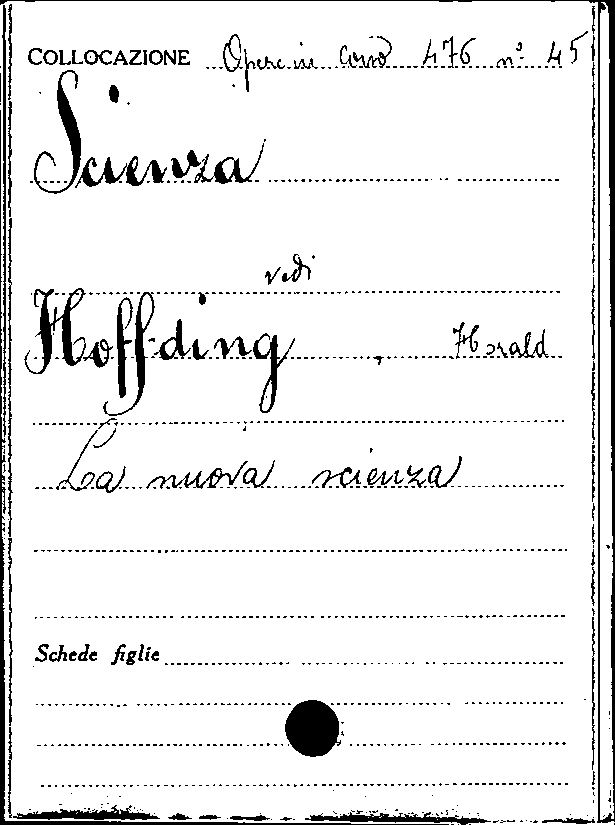 COLLOCAZIONE Opere in corso 476 n° 45
Scienza
vedi
Hoffding, Harald
La nuova scienza
Schede figlie